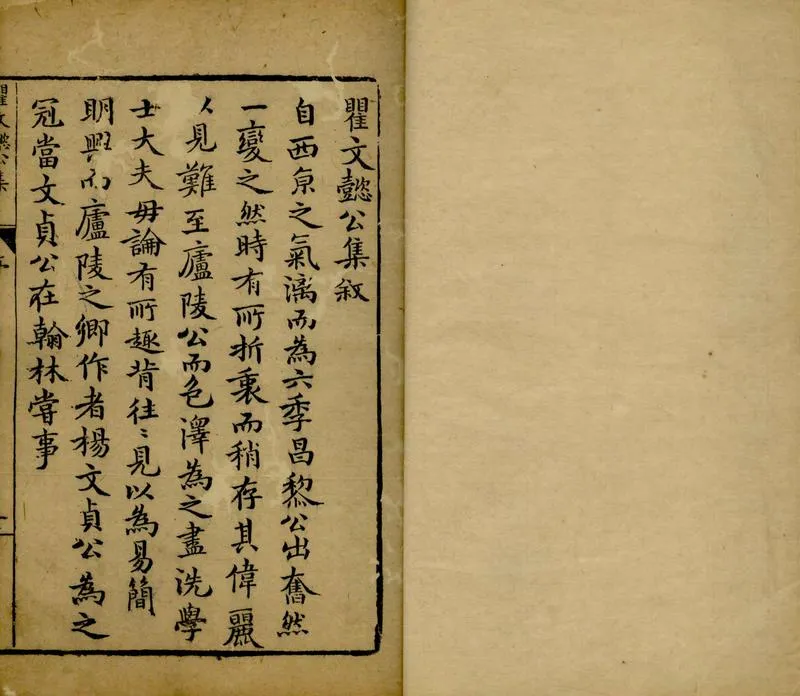 瞿文懿公集叙
自西亰之氣漓而為六季昌黎公出奮然
一變之然時有所折衷而稍存其偉麗
人見難至廬陵公而色澤為之盡洗學
士大夫毋論有所趣背往〻見以為易簡
明興而廬陵之鄉作者楊文貞公為之
冠當文貞公在翰林嘗事
瞿文懿公集